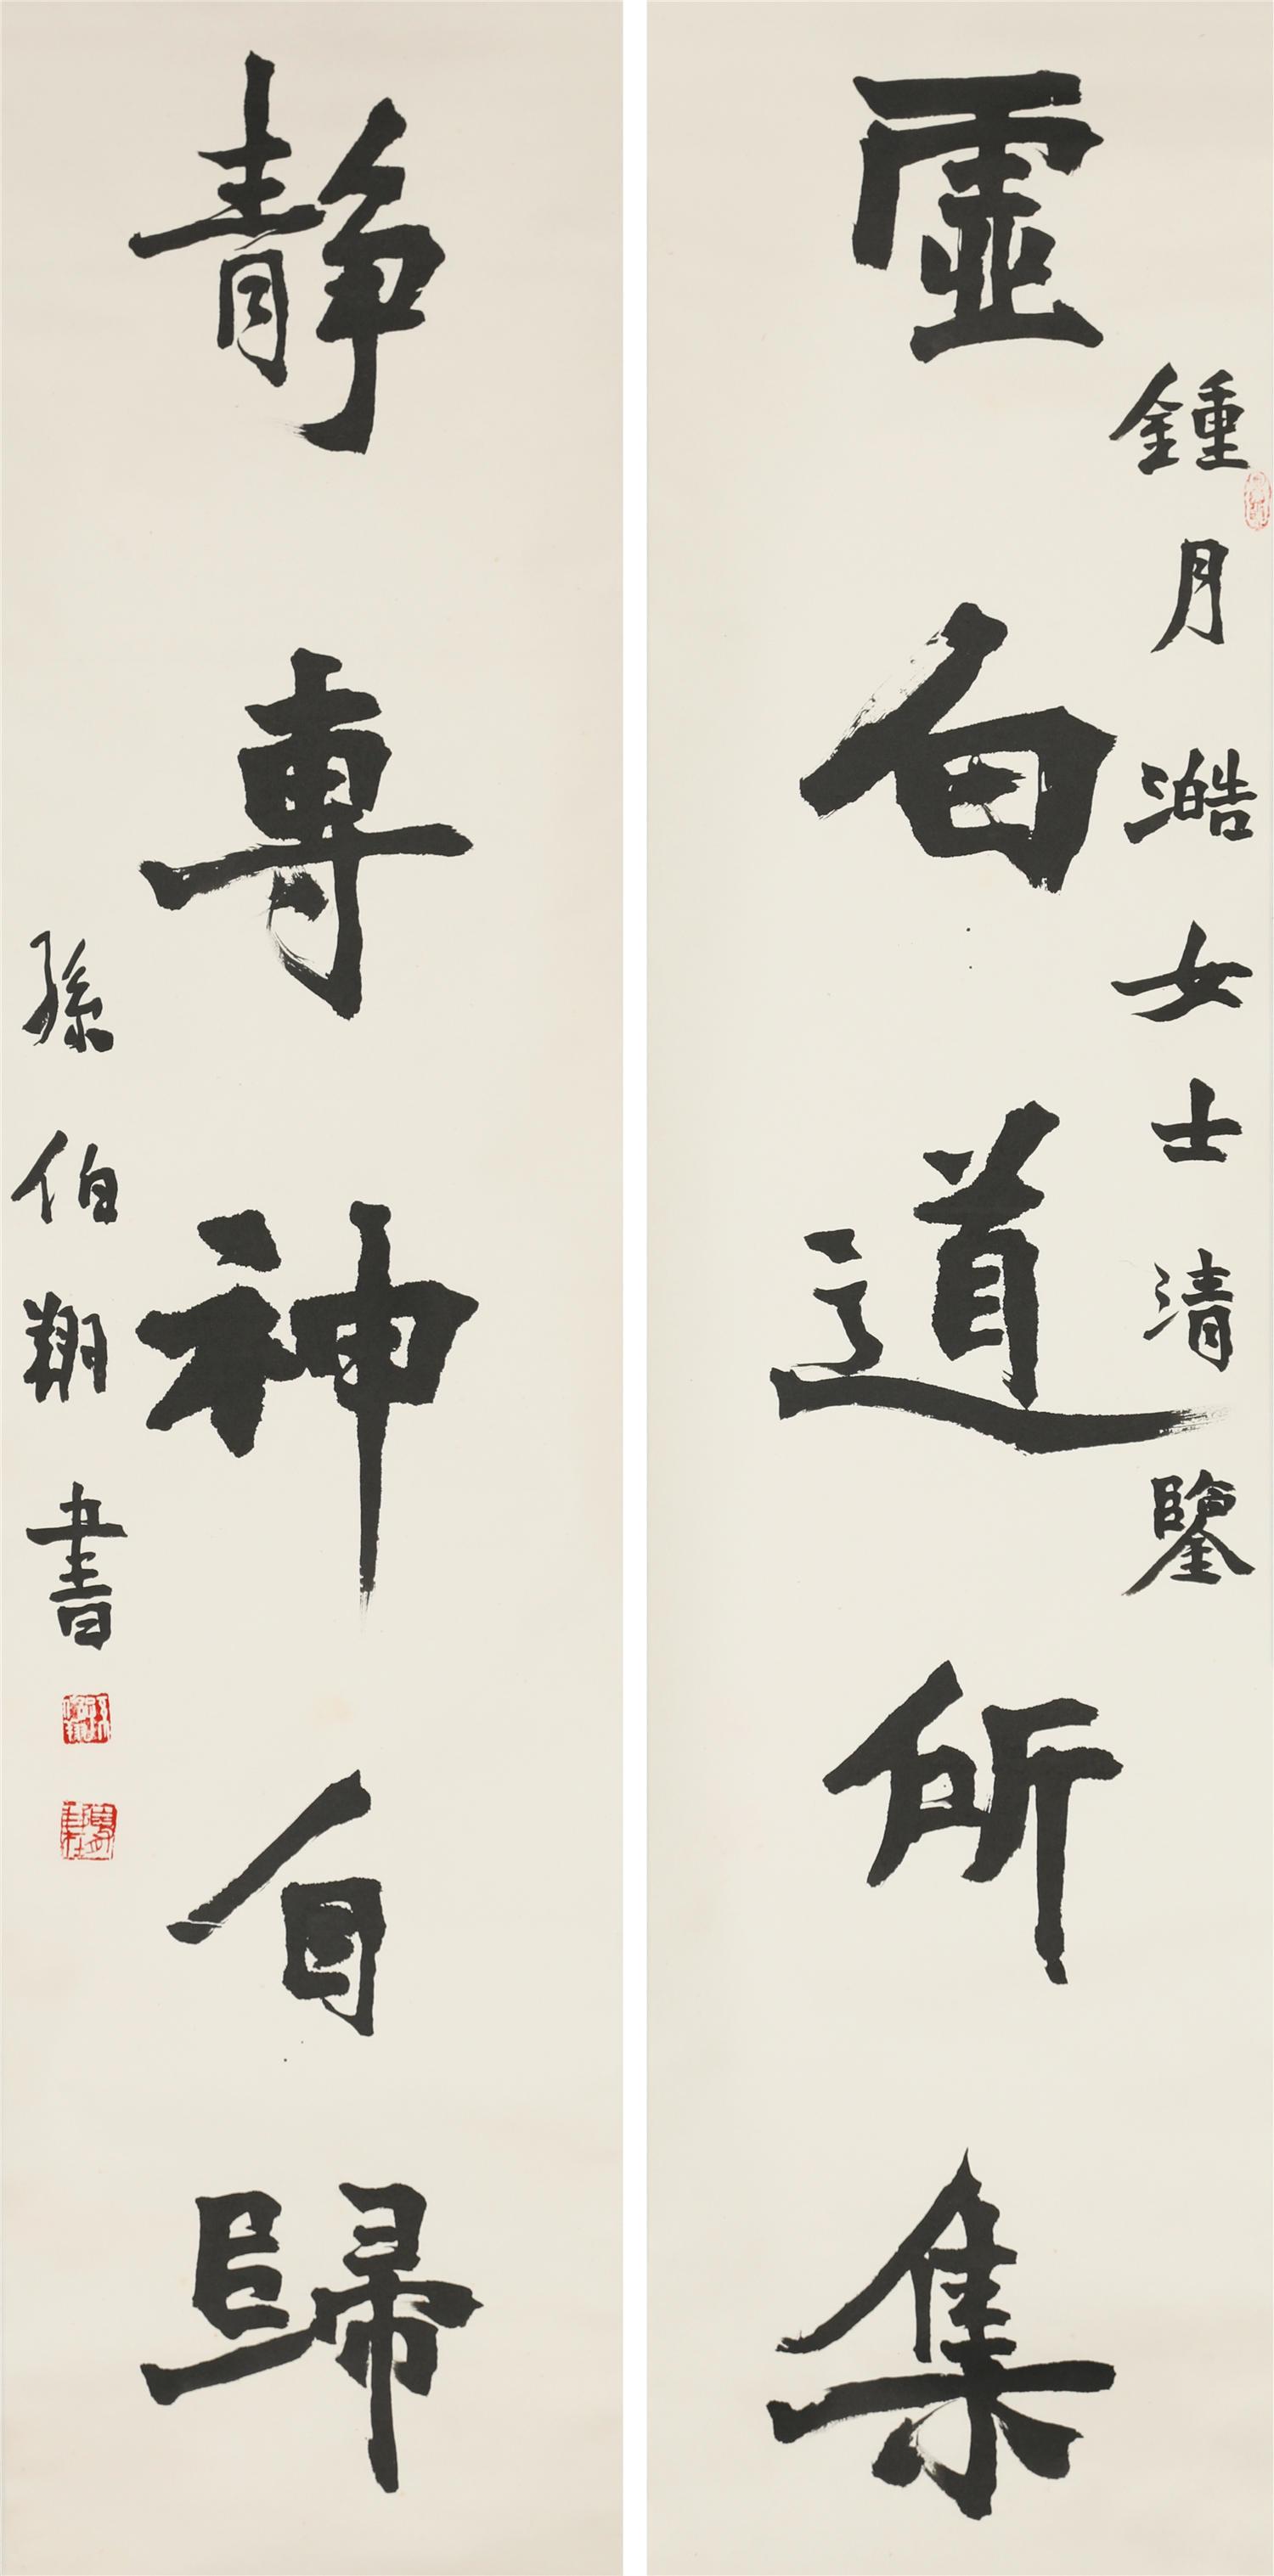 虛白道所集
鍾月澔女士清鑒
靜專神自歸
孫伯翔書